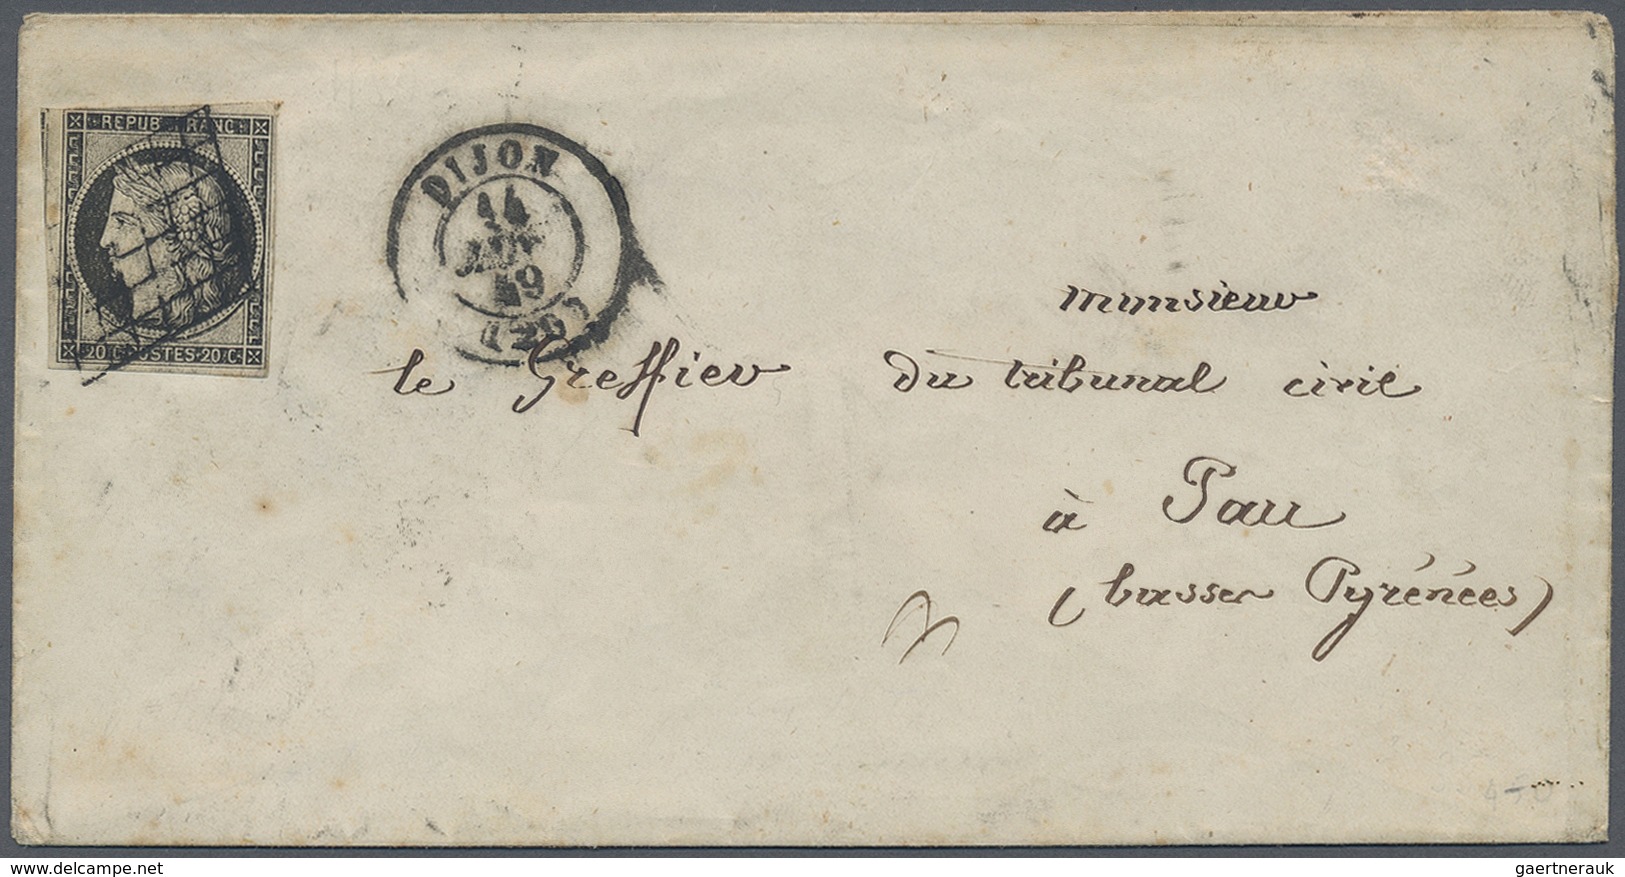 REPUB. FRANC.
20 C. POSTES. 20 C.
DIJON
14
49
(20)
monsieur
le Greffier du tribunal civil
à Pau
(basses Pyrénées)
delcampe.net
gaertnerauk